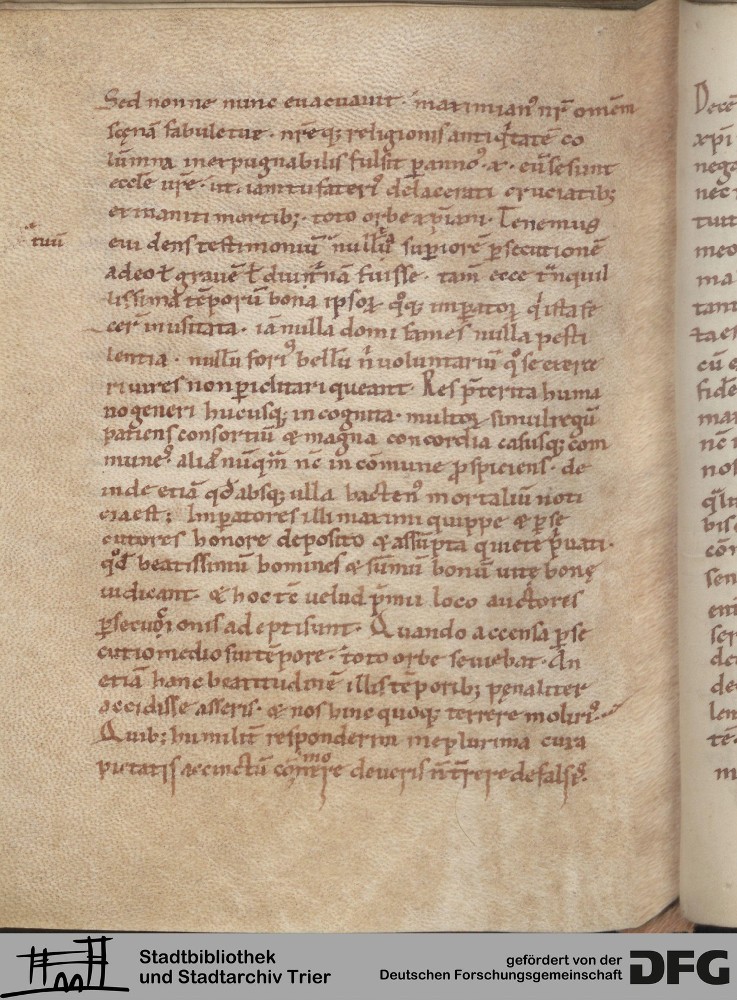 Sed nonne nunc euacuauit · maximian᷒ nr̄ omēm
scęnā fabulę tuę · nr̄eq; religionis antiq̇tatē co
lūmna inexpugnabilis fulsit p̲ anno᷒ · x · eū se sunt
eccle͞ ur̄e · ut · iam tu fater᷒ delacerati cruciatib;
et inaniti mortib; · toto orbe xp̄iani · Tenemus
tuū
eui dens testimoniū nullā sup̲iorē p̲secutionē
adeo ł grauē ł diut̓nā fuisse · tam ecce t̓nquil
lissima tēporū bona ipsor̨ q̊q; imp̲ator̨ q̇ ista fe
cer̄ inusitata · iā nulla domi fames nulla pesti
lentia · nullū foris bellū n̄ uoluntariū q̊ se exere
ri uires non p̲iclitari queant · Res p̄terita huma
no generi hucusq; in cognita · multor̨ simul regū
patiens consortiū & magna concordia casusq; com
mune᷒ alia᷒ nūq̄m nc̄ in cōmune p̱spiciens · de
inde etiā qd̄ absq; ulla hacten᷒ mortaliū noti
cia est; Imp̲atores illi maximi quippe & p̲se
cutores honore deposito & assūpta quiete p̓uati ·
qd̄ beatissimū homines & sūmū bonū uitę bonę
iudicant · & hoc tc̄ uelud p̄mii loco auctores
p̲secutionis adepti sunt · Quando accensa p̲se
cutio medio sui tēpore · toto orbe seuiebat · An
etiā hanc beatitudinē illis tēporib; pęnaliter
accidisse asseris · & nos hinc quoq; terrere moliri᷒ ·
Quib; humilit̄ responderim me plurima cura
pietatis accinctū cōmouere de ueris n̄ t̄rere de falsis ·
Stadtbibliothek
und Stadtarchiv Trier
gefördert von der
Deutschen Forschungsgemeinschaft
DFG